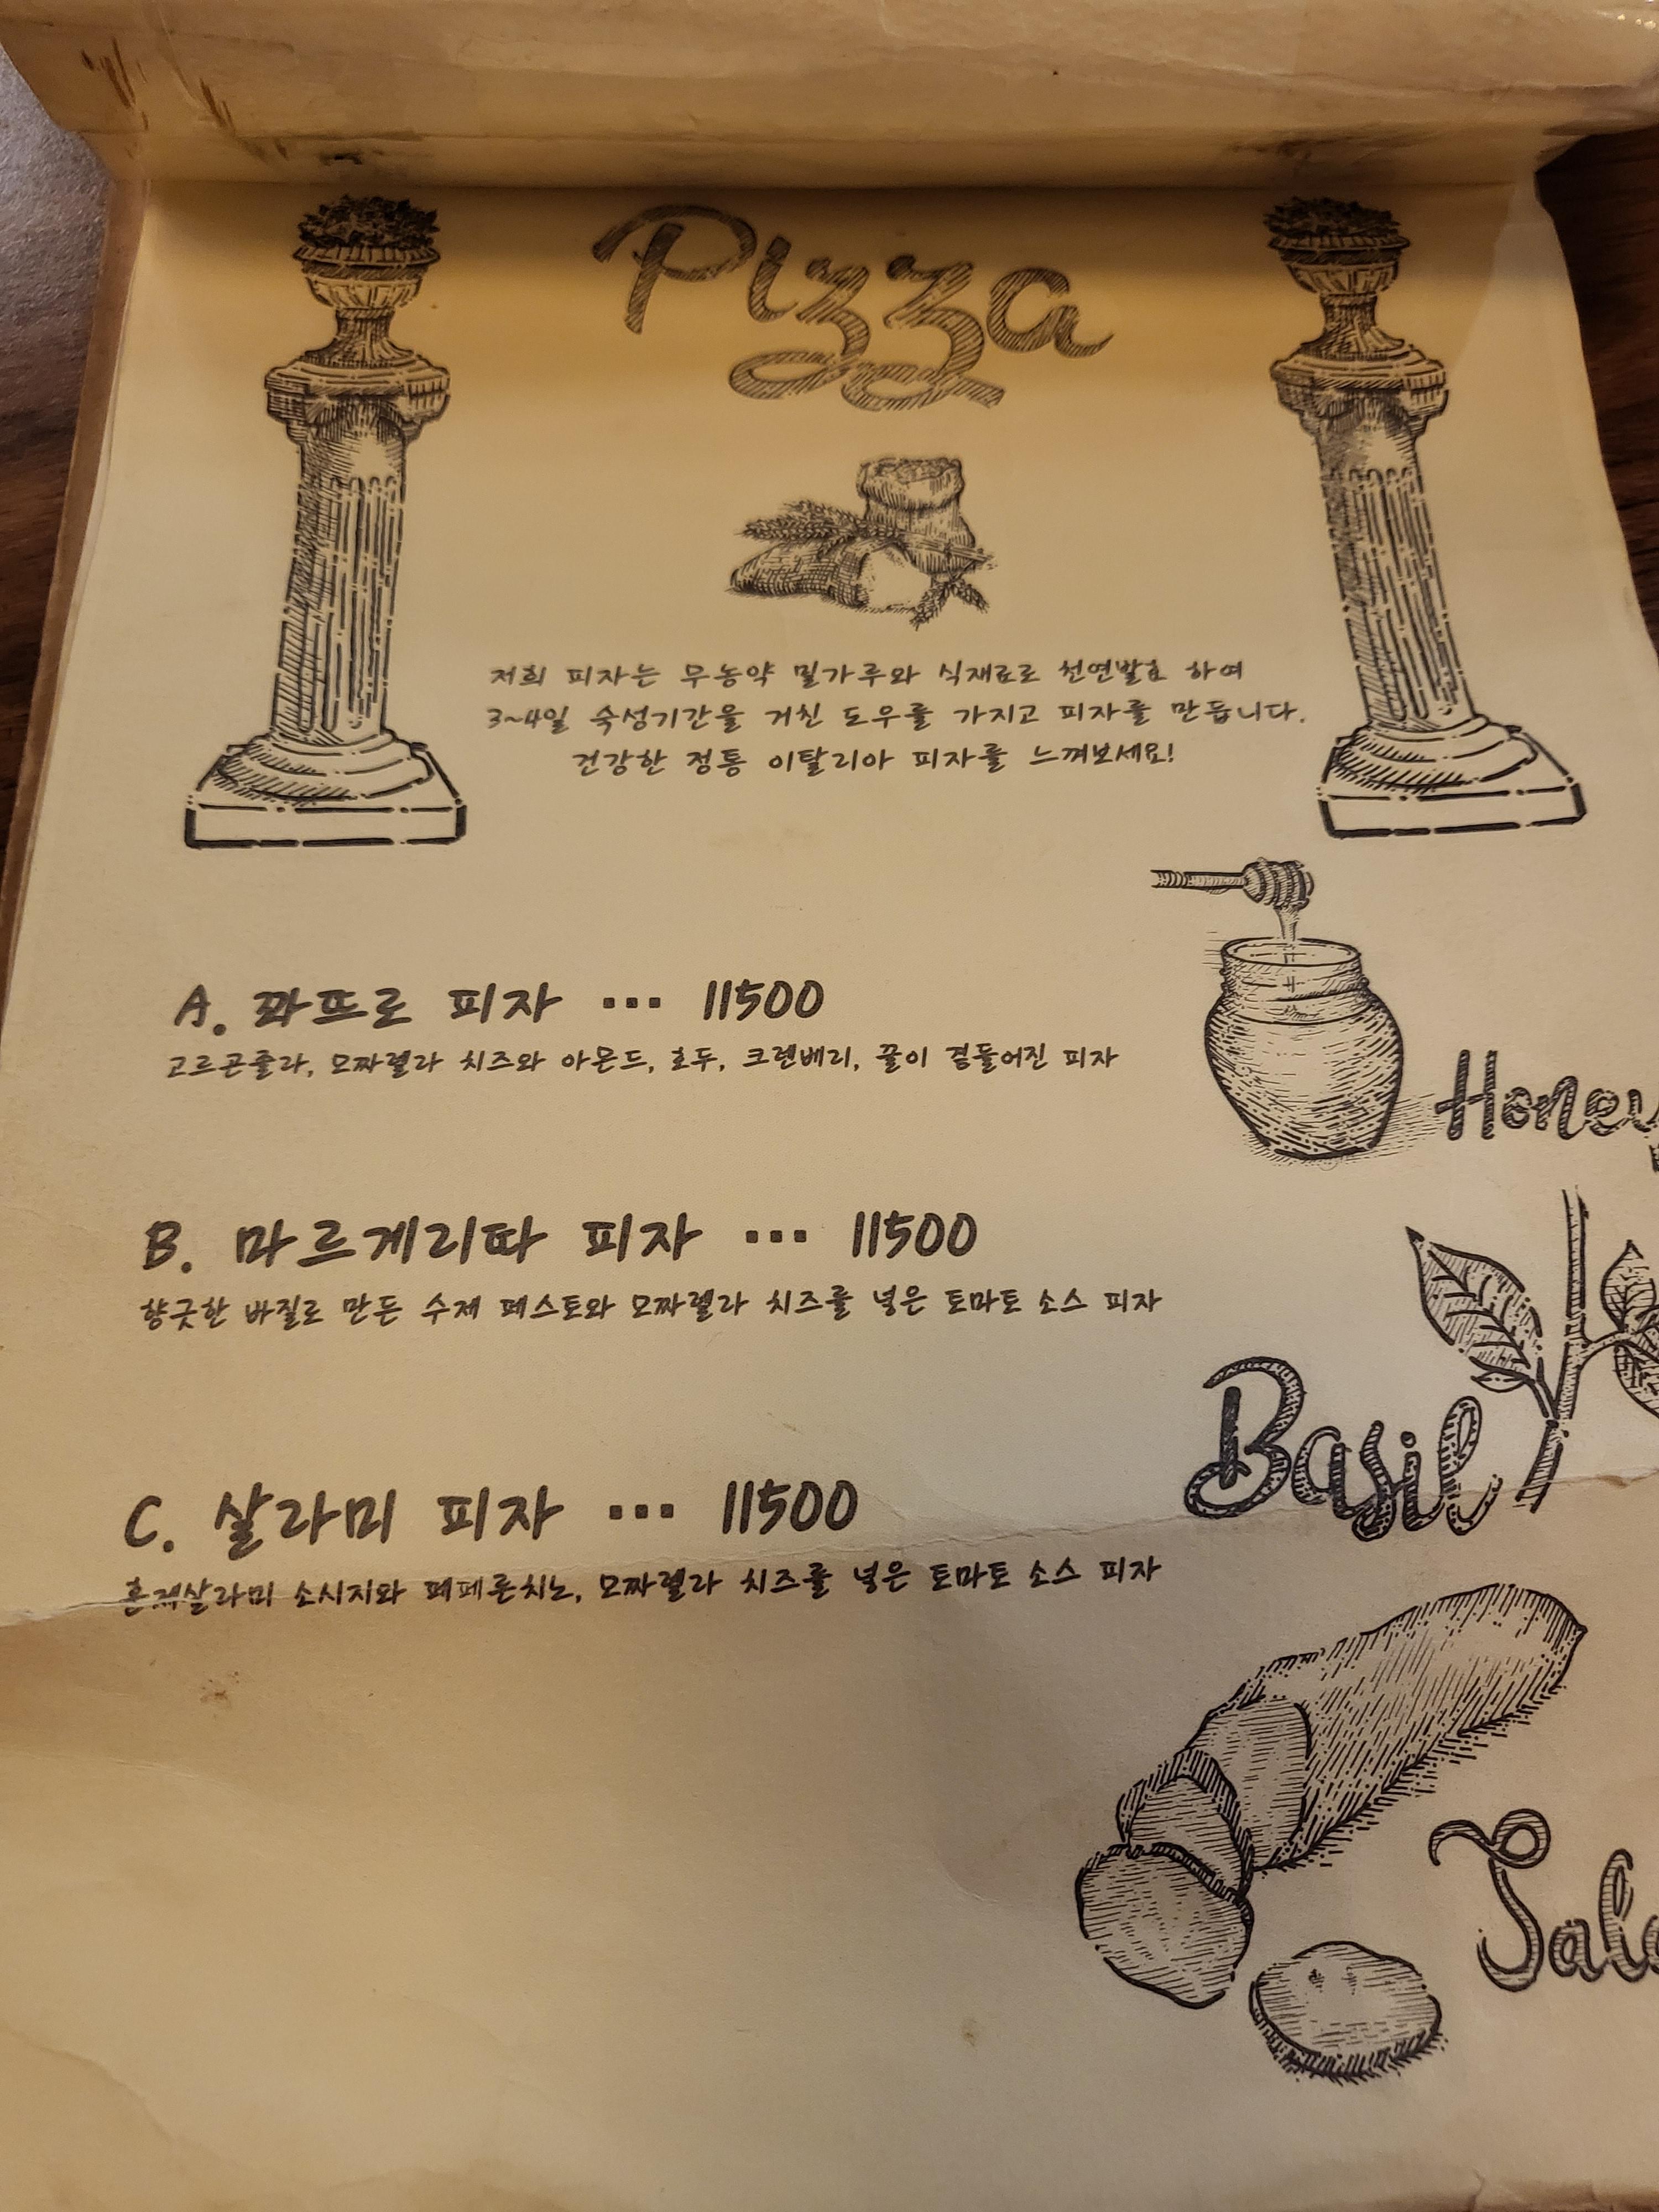 Pizza
저희 피자는 무농약 밀가루와 식재료로 천연발효 하여
3~4일 숙성기간을 거친 도우를 가지고 피자를 만듭니다.
건강한 정통 이탈리아 피자를 느껴보세요!
A. 콰뜨로 피자 ... 11500
고르곤졸라, 모짜렐라 치즈와 아몬드, 호두, 크렌베리, 꿀이 곁들어진 피자
Honey
B. 마르게리따 피자 ... 11500
향긋한 바질로 만든 수제 페스토와 모짜렐라 치즈를 넣은 토마토 소스 피자
Basil
C. 살라미 피자 ... 11500
훈제살라미 소시지와 페페론치노, 모짜렐라 치즈를 넣은 토마토 소스 피자